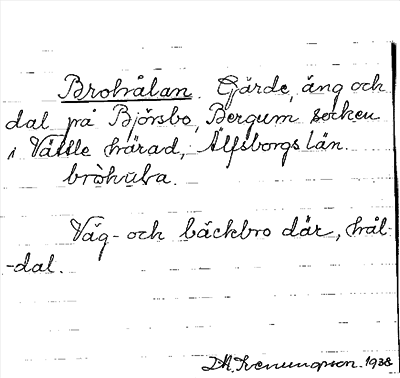 Brohålan. Gärde, äng och
dal på Björsbo, Bergum socken
i Vättle härad, Älfsborgs län.
bròhula.
Väg- och bäckbro där, hål-
-dal.
1938